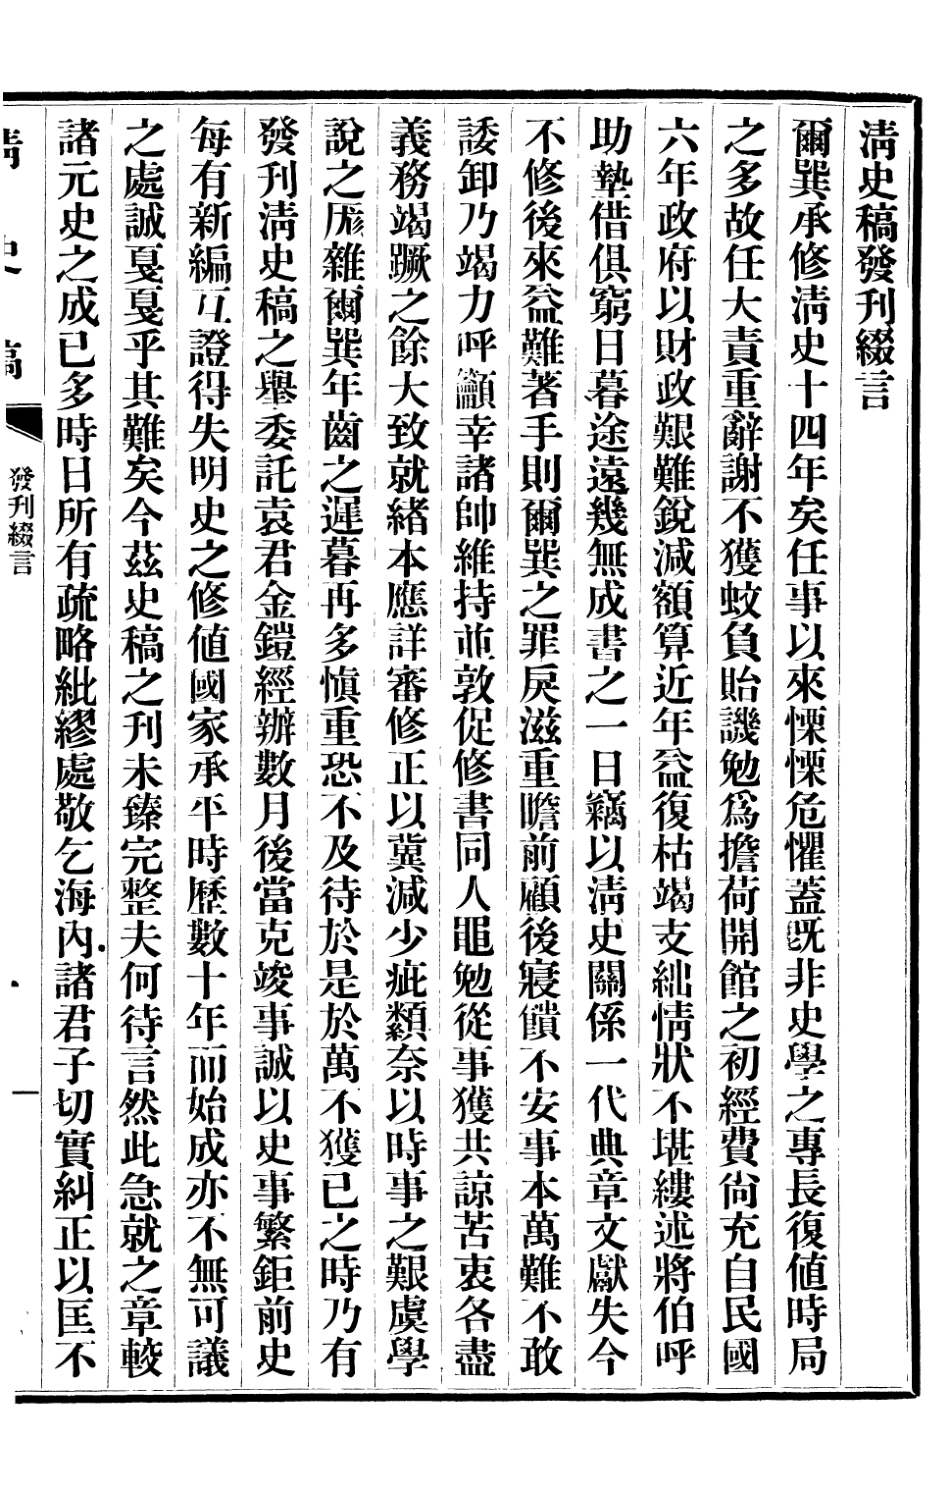 清史稿發刊綴言
爾巽承修清史十四年矣任事以來慄慄危懼蓋既非史學之專長復値時局
之多故任大責重辭謝不獲蚊負貽譏勉爲擔荷開館之初經費尙充自民國
六年政府以財政艱難銳減額算近年益復枯竭支絀情狀不堪縷述將伯呼
助墊借俱窮日暮途遠幾無成書之一日竊以清史關係一代典章文獻失今
不修後來益難著手則爾巽之罪戾滋重瞻前顧後寢饋不安事本萬難不敢
諉卸乃竭力呼籲幸諸帥維持並敦促修書同人黽勉從事獲共諒苦衷各盡
義務竭蹶之餘大致就緒本應詳審修正以冀減少疵纇奈以時事之艱虞學
說之厖雜爾巽年齒之遲暮再多愼重恐不及待於是於萬不獲已之時乃有
發刊清史稿之舉委託袁君金鎧經辦數月後當克竣事誠以史事繁鉅前史
每有新編互證得失明史之修値國家承平時歷數十年而始成亦不無可議
之處誠戛戛乎其難矣今茲史稿之刊未臻完整夫何待言然此急就之章較
諸元史之成已多時日所有疏略紕繆處敬乞海內諸君子切實糾正以匡不
清史稿
發刊綴言
一